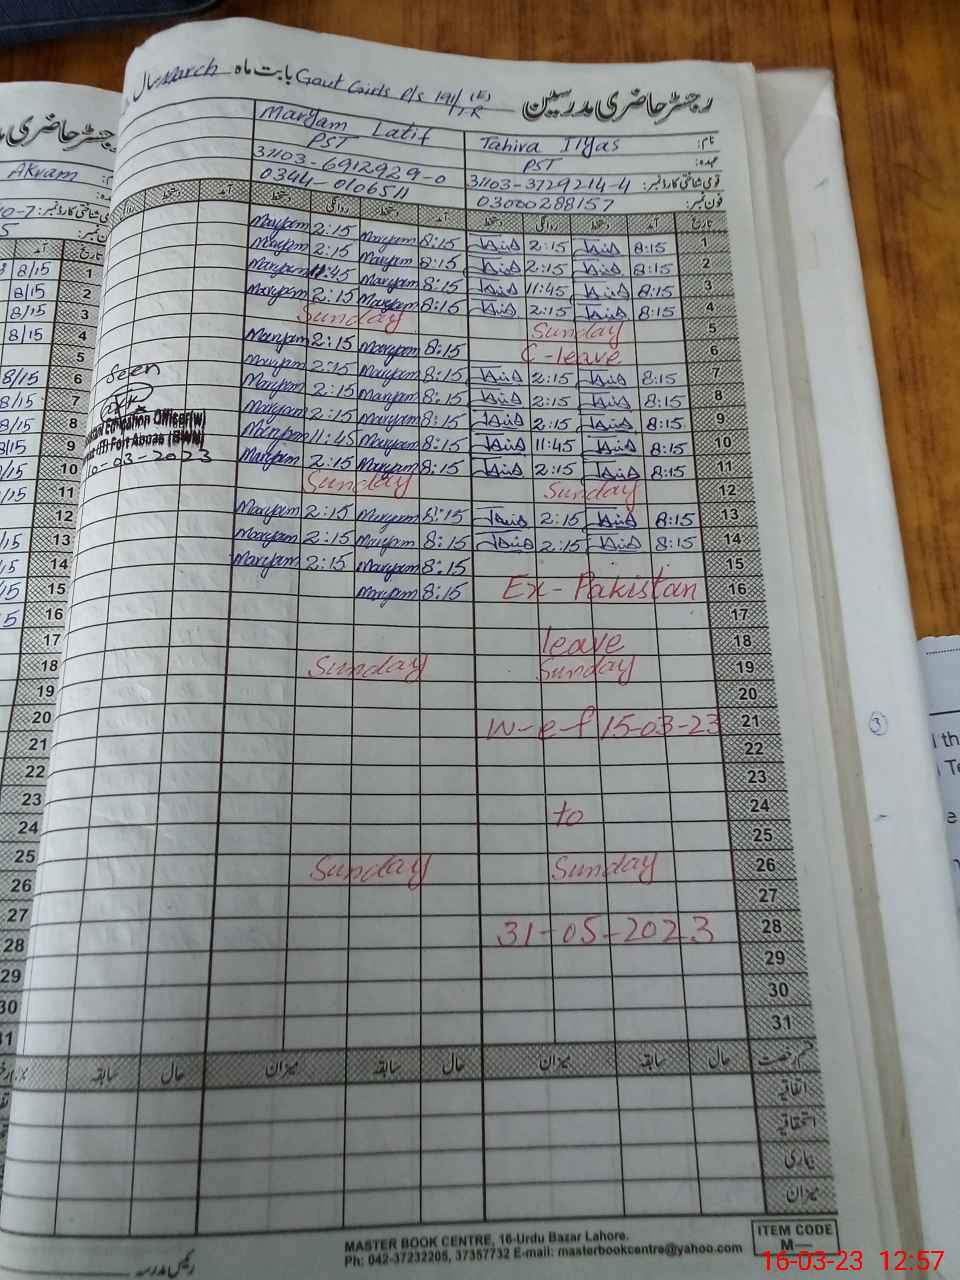 رجسٹر حاضری مدرسین
بابت ماہ March سال
Govt Girls P/s 191/7-R (E)
نام: Tahira Ilyas Maryam Latif
عہدہ: PST PST
قومی شناختی کارڈ نمبر: 31103-3729214-4 31103-6912929-0
فون نمبر: 03000288157 0344-0106511
تاریخ آمد دستخط روانگی دستخط آمد دستخط روانگی دستخط آمد دستخط
1 8:15 2:15 8:15 Maryam 2:15 Maryam
2 8:15 2:15 8:15 Maryam 2:15 Maryam
3 8:15 11:45 8:15 Maryam 11:45 Maryam
4 8:15 2:15 8:15 Maryam 2:15 Maryam
5 Sunday Sunday
6 C-leave 8:15 Maryam 2:15 Maryam
7 8:15 2:15 8:15 Maryam 2:15 Maryam
8 8:15 2:15 8:15 Maryam 2:15 Maryam
9 8:15 2:15 8:15 Maryam 2:15 Maryam
10 8:15 11:45 8:15 Maryam 11:45 Maryam
11 8:15 2:15 8:15 Maryam 2:15 Maryam
12 Sunday Sunday
13 8:15 2:15 8:15 Maryam 2:15 Maryam
14 8:15 2:15 8:15 Maryam 2:15 Maryam
15 8:15 Maryam 2:15 Maryam
16 Ex-Pakistan 8:15 Maryam
17
18 leave
19 Sunday Sunday
20
21 w-e-f 15-03-23
22
23
24 to
25
26 Sunday Sunday
27
28 31-05-2023
29
30
31
Seen
Education Officer(w)
Fort Abbas (BWN)
10-03-2023
قسم رخصت حال سابقہ میزان حال سابقہ میزان حال سابقہ
اتفاقیہ
استحقاقیہ
بیماری
میزان
رئیس مدرسہ
MASTER BOOK CENTRE, 16-Urdu Bazar Lahore.
Ph: 042-37232205, 37357732 E-mail: masterbookcentre@yahoo.com
ITEM CODE
M—
16-03-23 12:57
رجسٹر حاضری
Akram